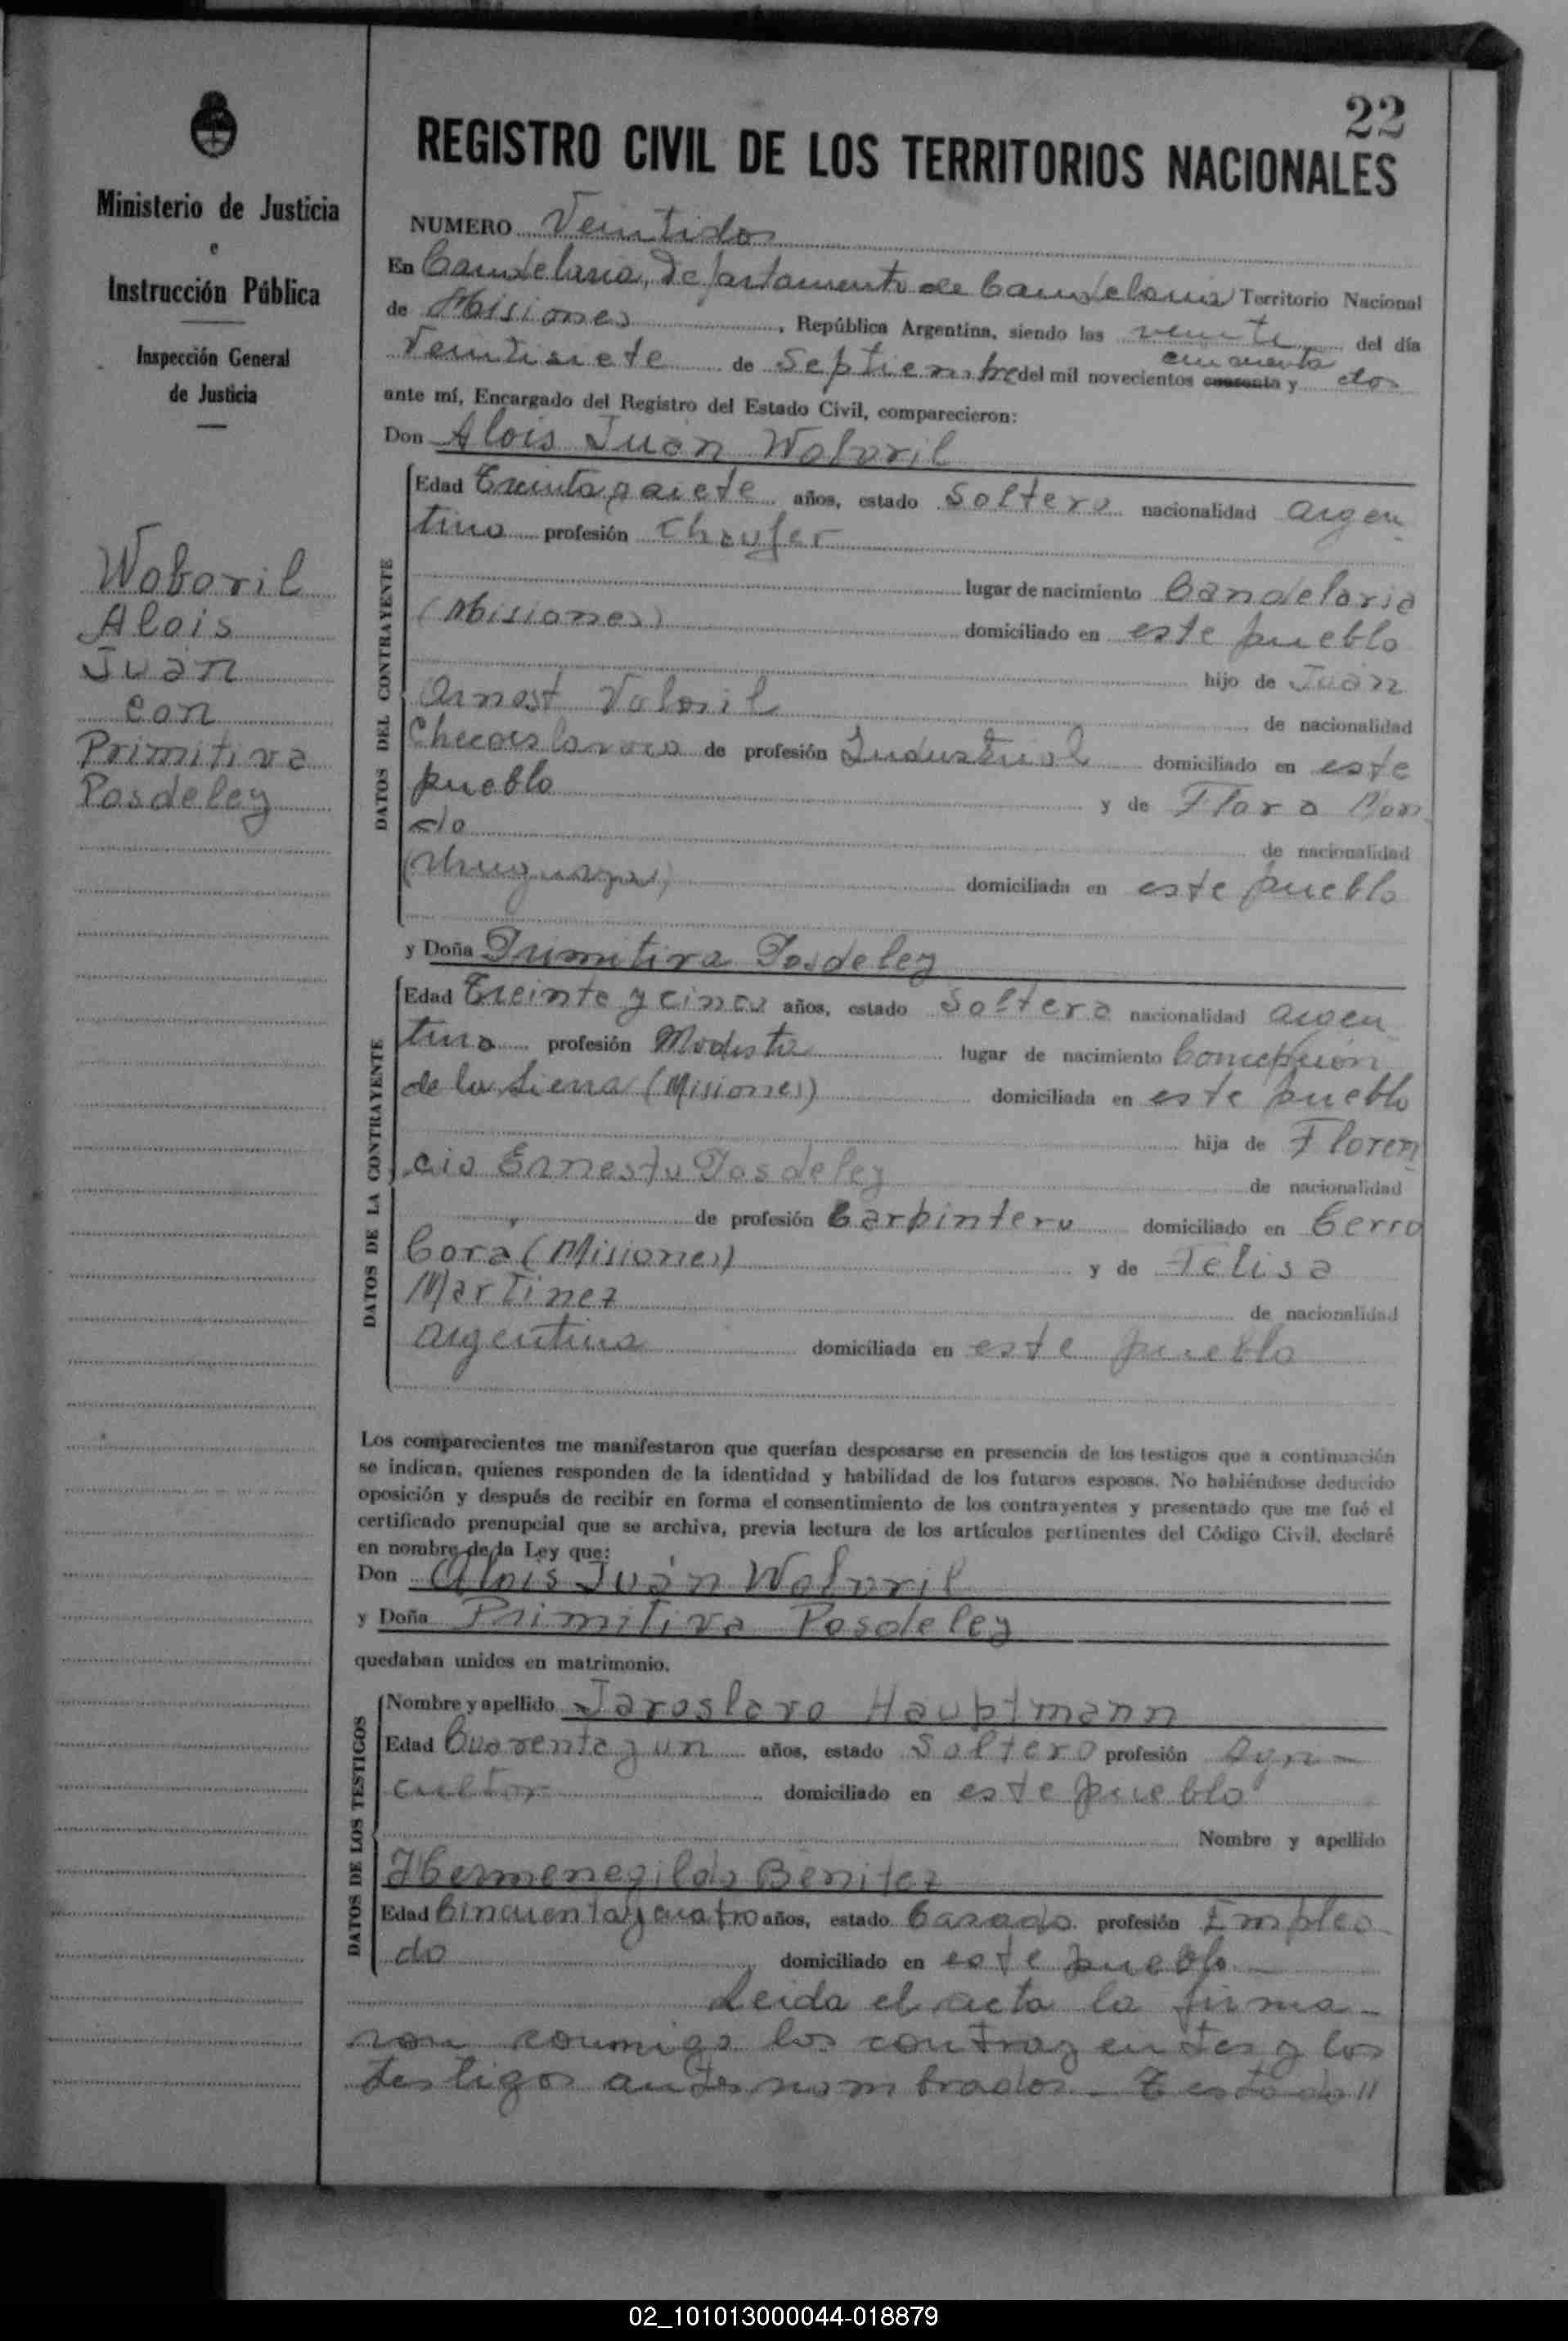 22
Ministerio de Justicia
e
Instrucción Pública
Inspección General
de Justicia
Woboril
Alois
Juan
con
Primitiva
Posdeley
REGISTRO CIVIL DE LOS TERRITORIOS NACIONALES
NUMERO Veintidos
En Candelaria, Departamento de Candelaria Territorio Nacional
de Misiones, República Argentina, siendo las veinte del día
Veintisiete de Septiembre del mil novecientos cuarenta cincuenta y dos
ante mí, Encargado del Registro del Estado Civil, comparecieron:
Don Alois Juan Woboril
DATOS DEL CONTRAYENTE
Edad Treinta y siete años, estado Soltero nacionalidad argen
tino profesión Chaufer
lugar de nacimiento Candelaria
(Misiones) domiciliado en este pueblo
hijo de Juan
Arnost Voboril de nacionalidad
Checoeslovaco de profesión Industrial domiciliado en este
pueblo y de Flora
do de nacionalidad
(Uruguaya) domiciliada en este pueblo
y Doña Primitiva Posdeley
DATOS DE LA CONTRAYENTE
Edad Treinta y cinco años, estado Soltera nacionalidad argen
tina profesión Modista lugar de nacimiento Concepción
de la Sierra (Misiones) domiciliada en este pueblo
hija de Floren
cio Ernesto Posdeley de nacionalidad
de profesión Carpintero domiciliado en Cerro
Cora (Misiones) y de Felisa
Martinez de nacionalidad
argentina domiciliada en este pueblo
Los comparecientes me manifestaron que querían desposarse en presencia de los testigos que a continuación
se indican, quienes responden de la identidad y habilidad de los futuros esposos. No habiéndose deducido
oposición y después de recibir en forma el consentimiento de los contrayentes y presentado que me fué el
certificado prenupcial que se archiva, previa lectura de los artículos pertinentes del Código Civil, declaré
en nombre de la Ley que:
Don Alois Juan Woboril
y Doña Primitiva Posdeley
quedaban unidos en matrimonio.
DATOS DE LOS TESTIGOS
Nombre y apellido Jaroslavo Hauptmann
Edad Cuarenta y un años, estado Soltero profesión Agri-
cultor domiciliado en este pueblo
Nombre y apellido
Hermenegildo Benitez
Edad Cincuenta y cuatro años, estado Casado profesión Emplea
do domiciliado en este pueblo
Leida el acta la firma-
ron conmigo los contrayentes y los
testigos antes nombrados - Testado "
02_101013000044-018879